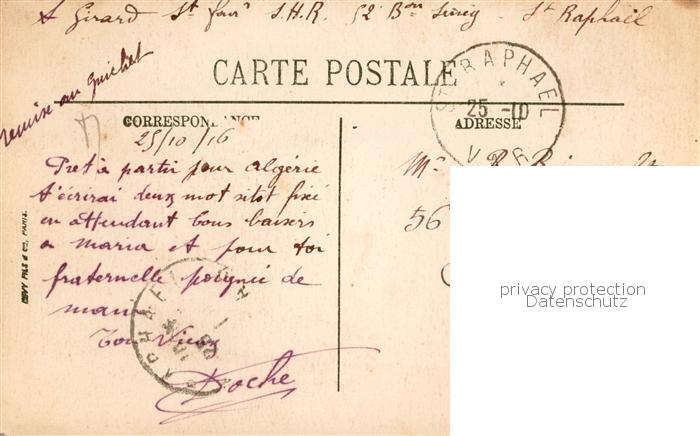 A Girard St four S.H.R. 52 Bon St Raphaël
remise au guichet
CARTE POSTALE
CORRESPONDANCE
ADRESSE
ST RAPHAEL
25 -10
VAR
25/10/16
Pret à partir pour algérie
t'écrirai deux mot sitôt fixé
en attendant bons baisers
a maria et pour toi
fraternelle poignée de
main
Ton Vieux
Doche
56
LEVY FILS & Cie, PARIS.
privacy protection
Datenschutz